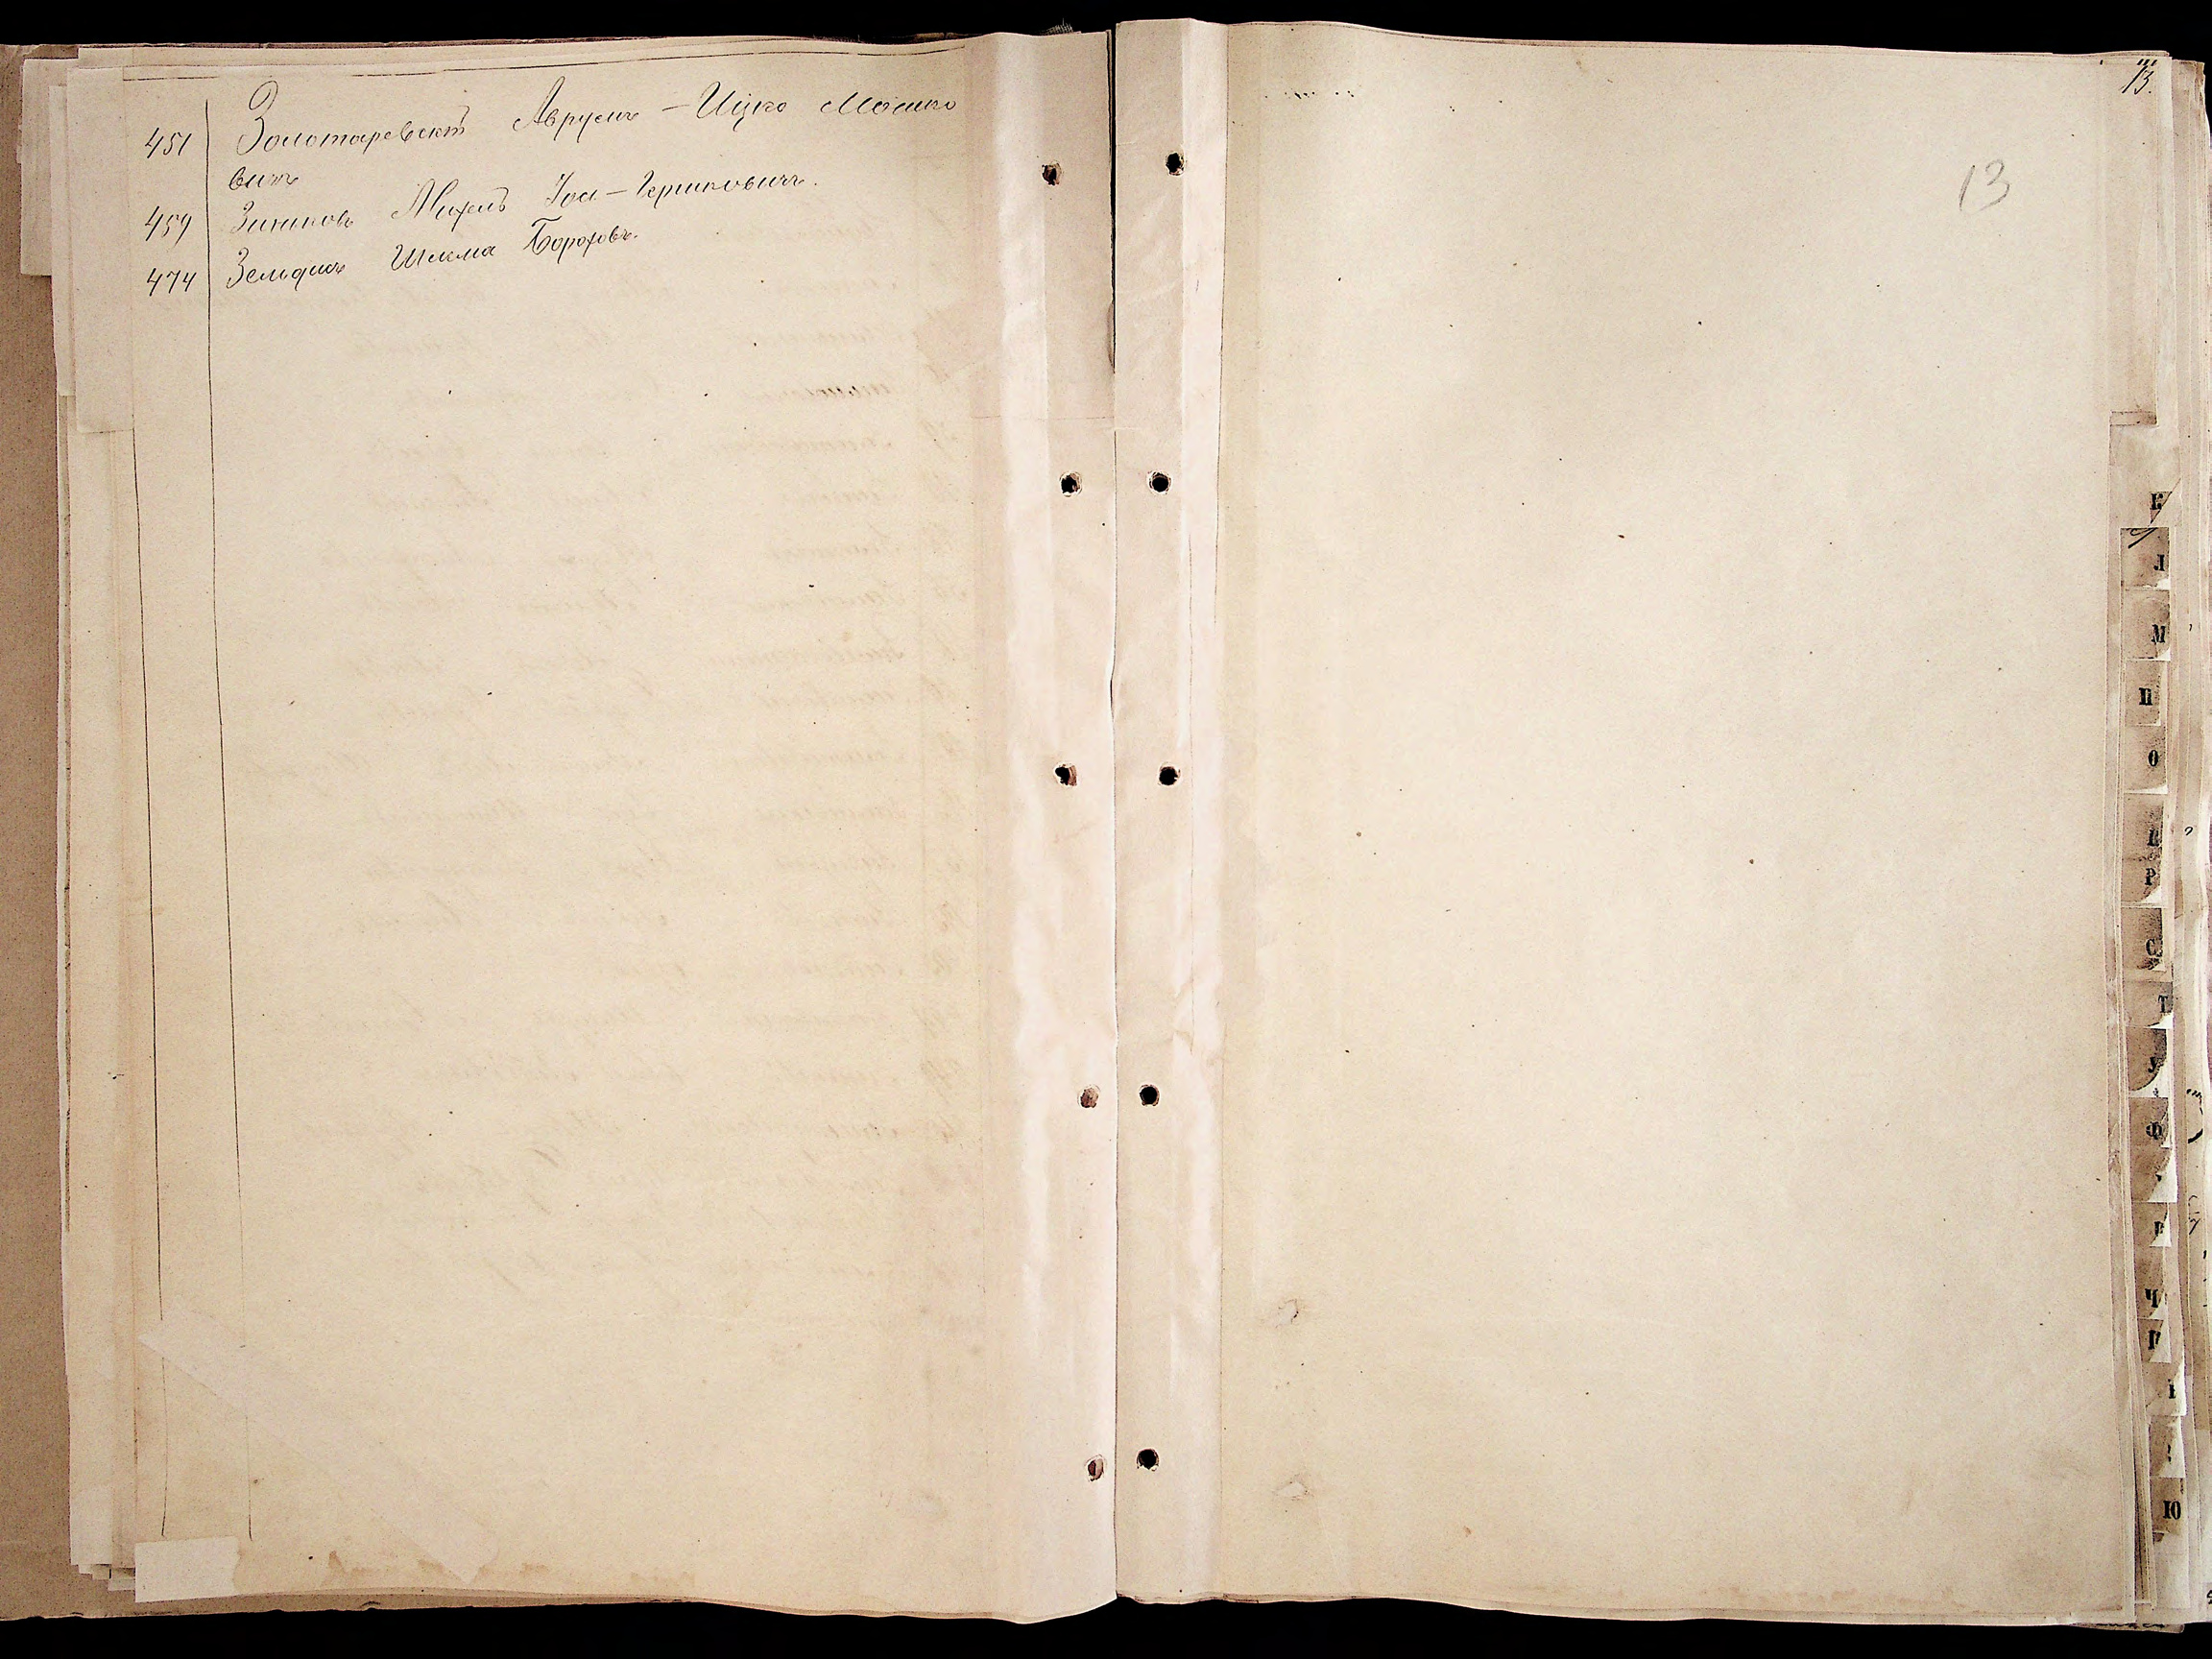 451 Золотаревскій Аврумъ-Ицко Мошко
вичъ
459 Зининовъ Михель Іос-Гершковичъ.
474 Зельдинъ Шлема Бороховъ.
13.
13
К
Л
М
П
О
Р
С
Т
У
Ф
Ч
Ю